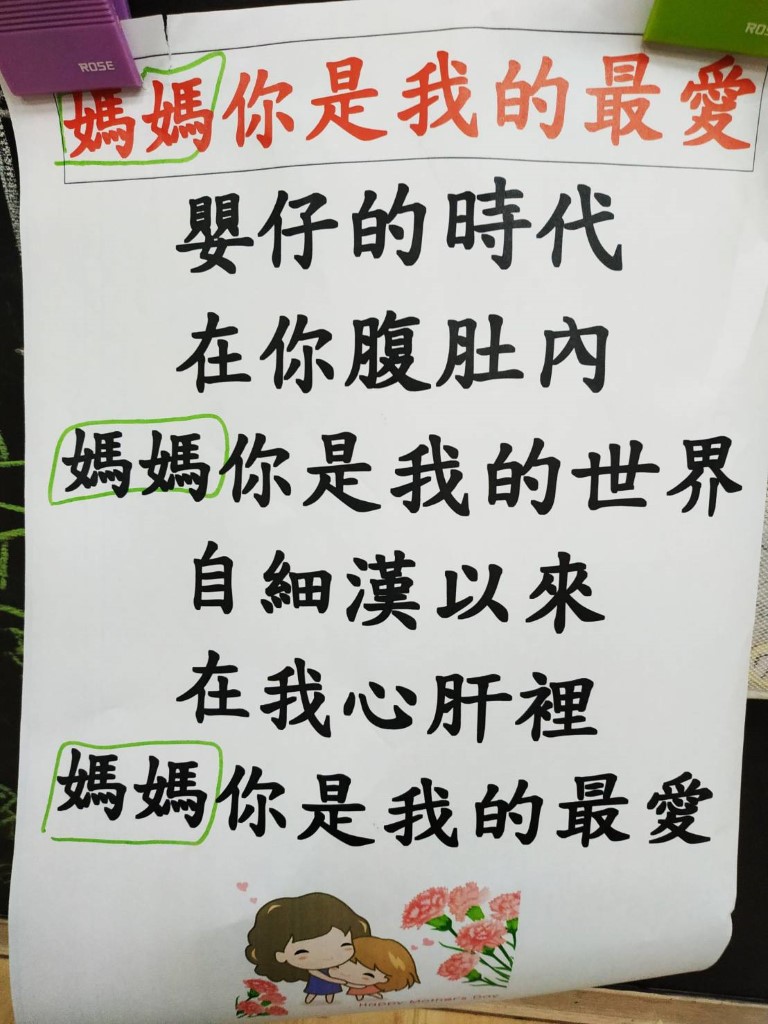 ROSE
ROS
媽媽你是我的最愛
嬰仔的時代
在你腹肚內
媽媽你是我的世界
自細漢以來
在我心肝裡
媽媽你是我的最愛
Happy Mother's Day